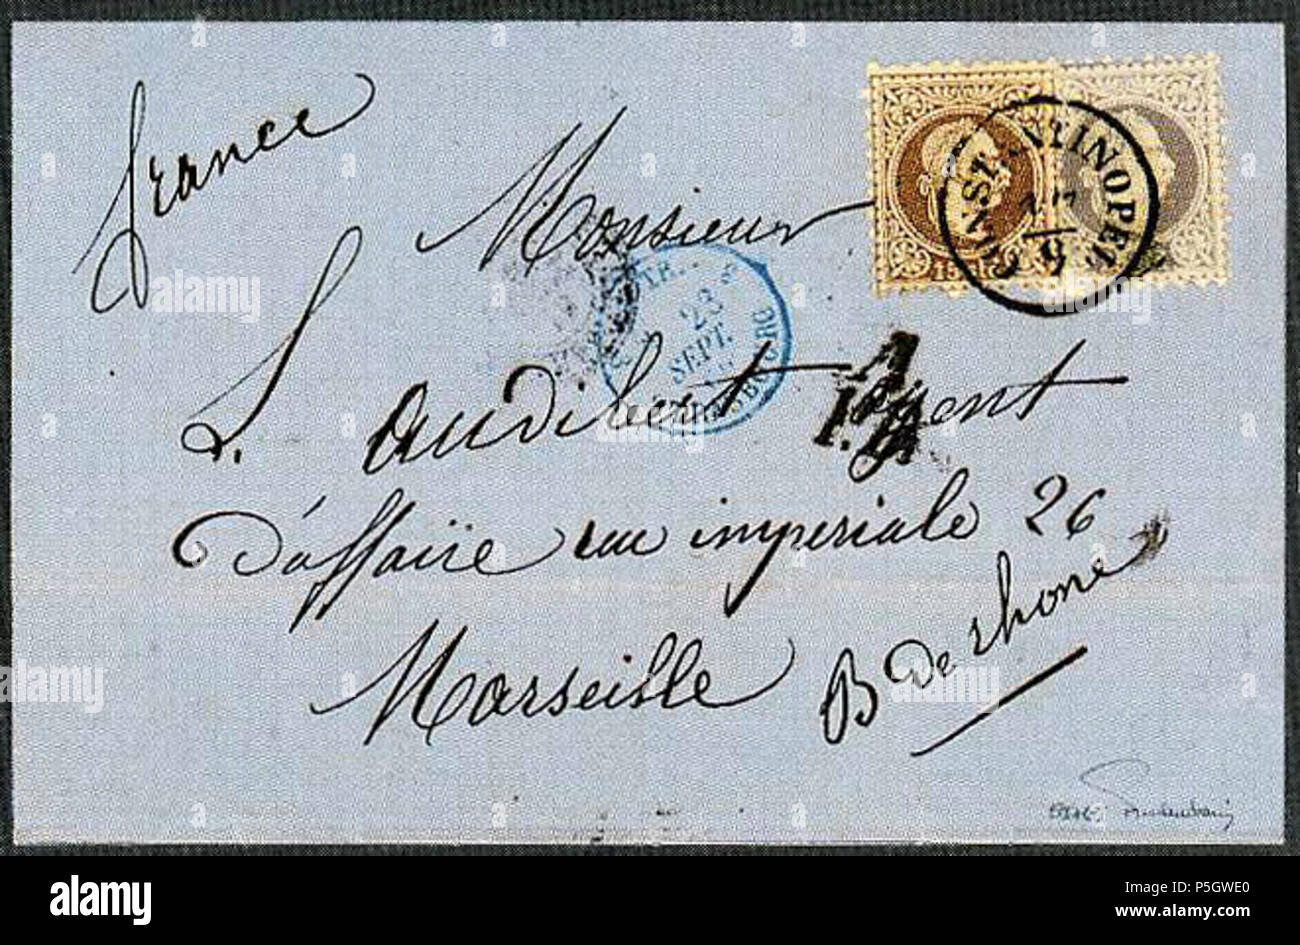 france
Monsieur
L. audibert Agent
D'affaire rue imperiale 26
Marseille
B de rhone
CONSTANTINOPEL
17
9
23
SEPT.
STRASBOURG
15
alamy
Image ID: P5GWE0
www.alamy.com